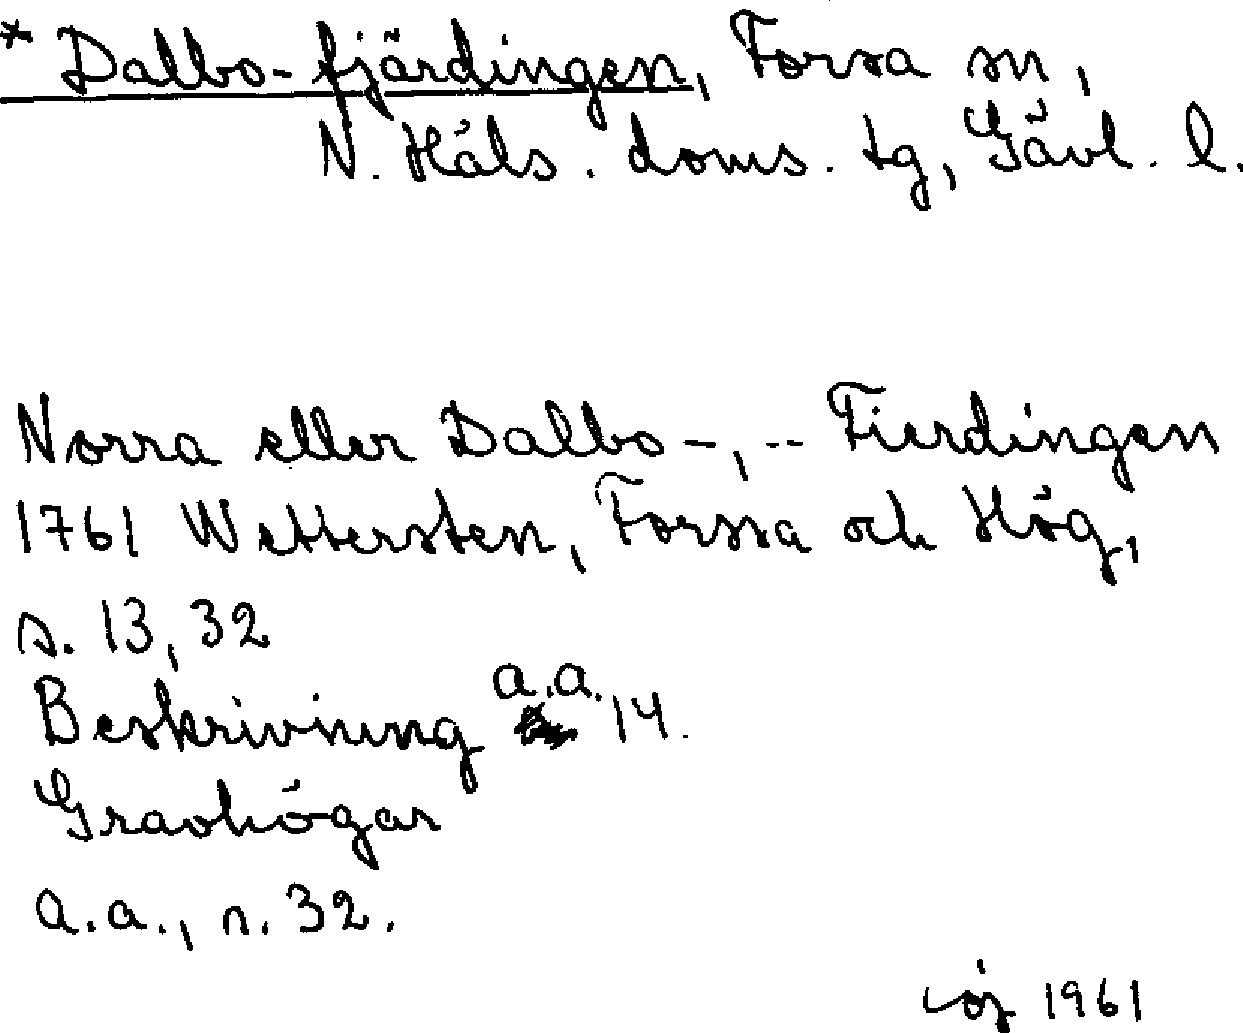 * Dalbo-fjärdingen, Forsa sn,
N. Häls. doms. tg, Gävl. l.
Norra eller Dalbo-, -- Fierdingen
1761 Wettersten, Forssa och Hög,
s. 13, 32
Beskrivning a.a. 14.
Gravhögar
a.a., s. 32.
1961